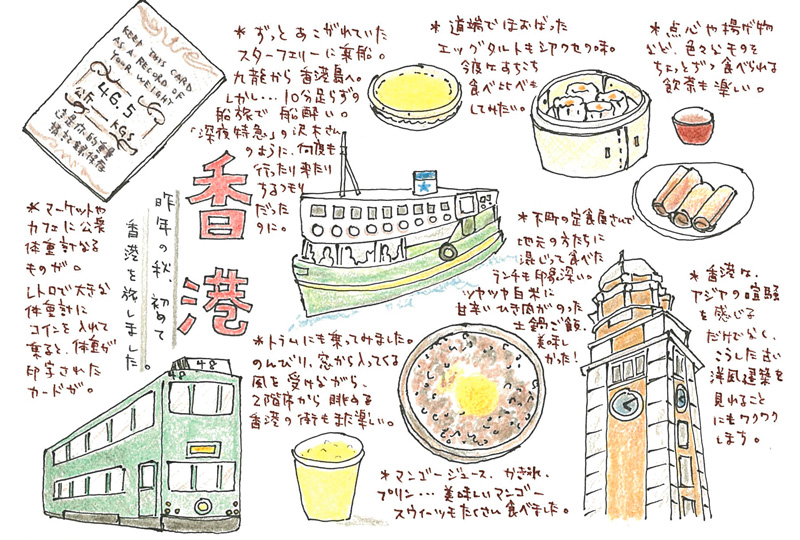 KEEP THIS CARD
AS A RECORD OF
YOUR WEIGHT
公斤
46.5
KGS
這是你的重量
*ずっとあこがれていた
スターフェリーに乗船。
九龍から香港島へ。
しかし…10分足らずの
船旅で船酔い。
「深夜特急」の沢木さん
のように、何度も
行ったり来たり
するつもり
だった
のに。
*道端でほおばった
エッグタルトもシアワセの味。
今度はあちこち
食べ比べも
してみたい。
*点心や揚げ物
など、色々なモノを
ちょっとずつ食べられる
飲茶も楽しい。
香港
昨年の秋、初めて
香港を旅しました。
*マーケットや
カフェに公衆
体重計なる
ものが。
レトロで大きな
体重計に
コインを入れて
乗ると、体重が
印字された
カードが。
*下町の定食屋さんで
地元の方たちに
混じって食べた
ランチも印象深い。
ツヤツヤ白米に
甘辛いひき肉がのった
土鍋ご飯、
美味し
かった!
*香港は、
アジアの喧騒
を感じる
だけでなく、
こうした古い
洋風建築を
見れること
にもワクワク
します。
*トラムにも乗ってみました。
のんびり、窓から入ってくる
風を受けながら、
2階席から眺める
香港の街もまた楽しい。
48
48
*マンゴージュース、かき氷、
プリン…美味しいマンゴー
スウィーツもたくさん食べました。